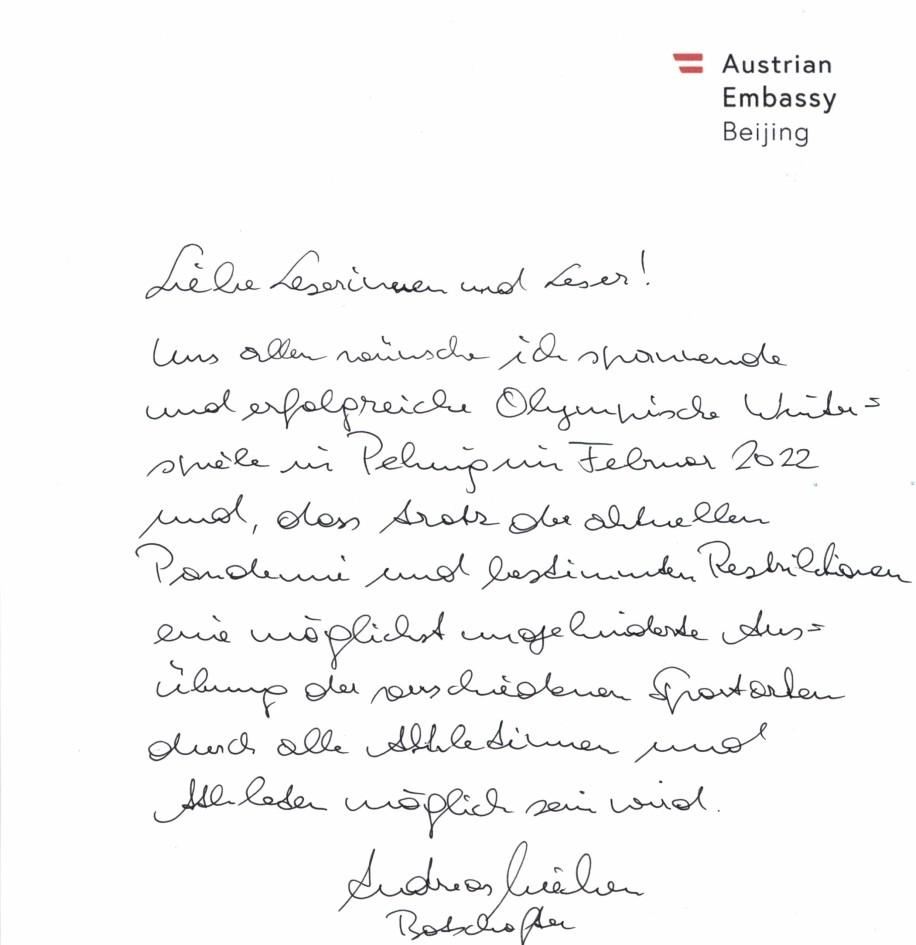 Austrian
Embassy
Beijing
Liebe Leserinnen und Leser!
Uns allen wünsche ich spannende
und erfolgreiche Olympische Winter=
spiele in Peking im Februar 2022
und, dass trotz der aktuellen
Pandemie und bestimmten Restriktionen
eine möglichst ungehinderte Aus=
übung der verschiedenen Sportarten
durch alle Athletinnen und
Athleten möglich sein wird.
Andreas
Botschafter